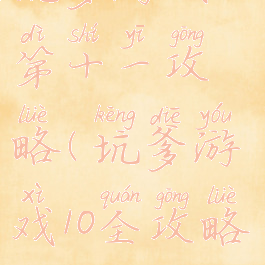 dì shí yī gòng
第十一攻
lüè kēng diē yóu
略(坑爹游
xì quán gòng lüè
戏10全攻略